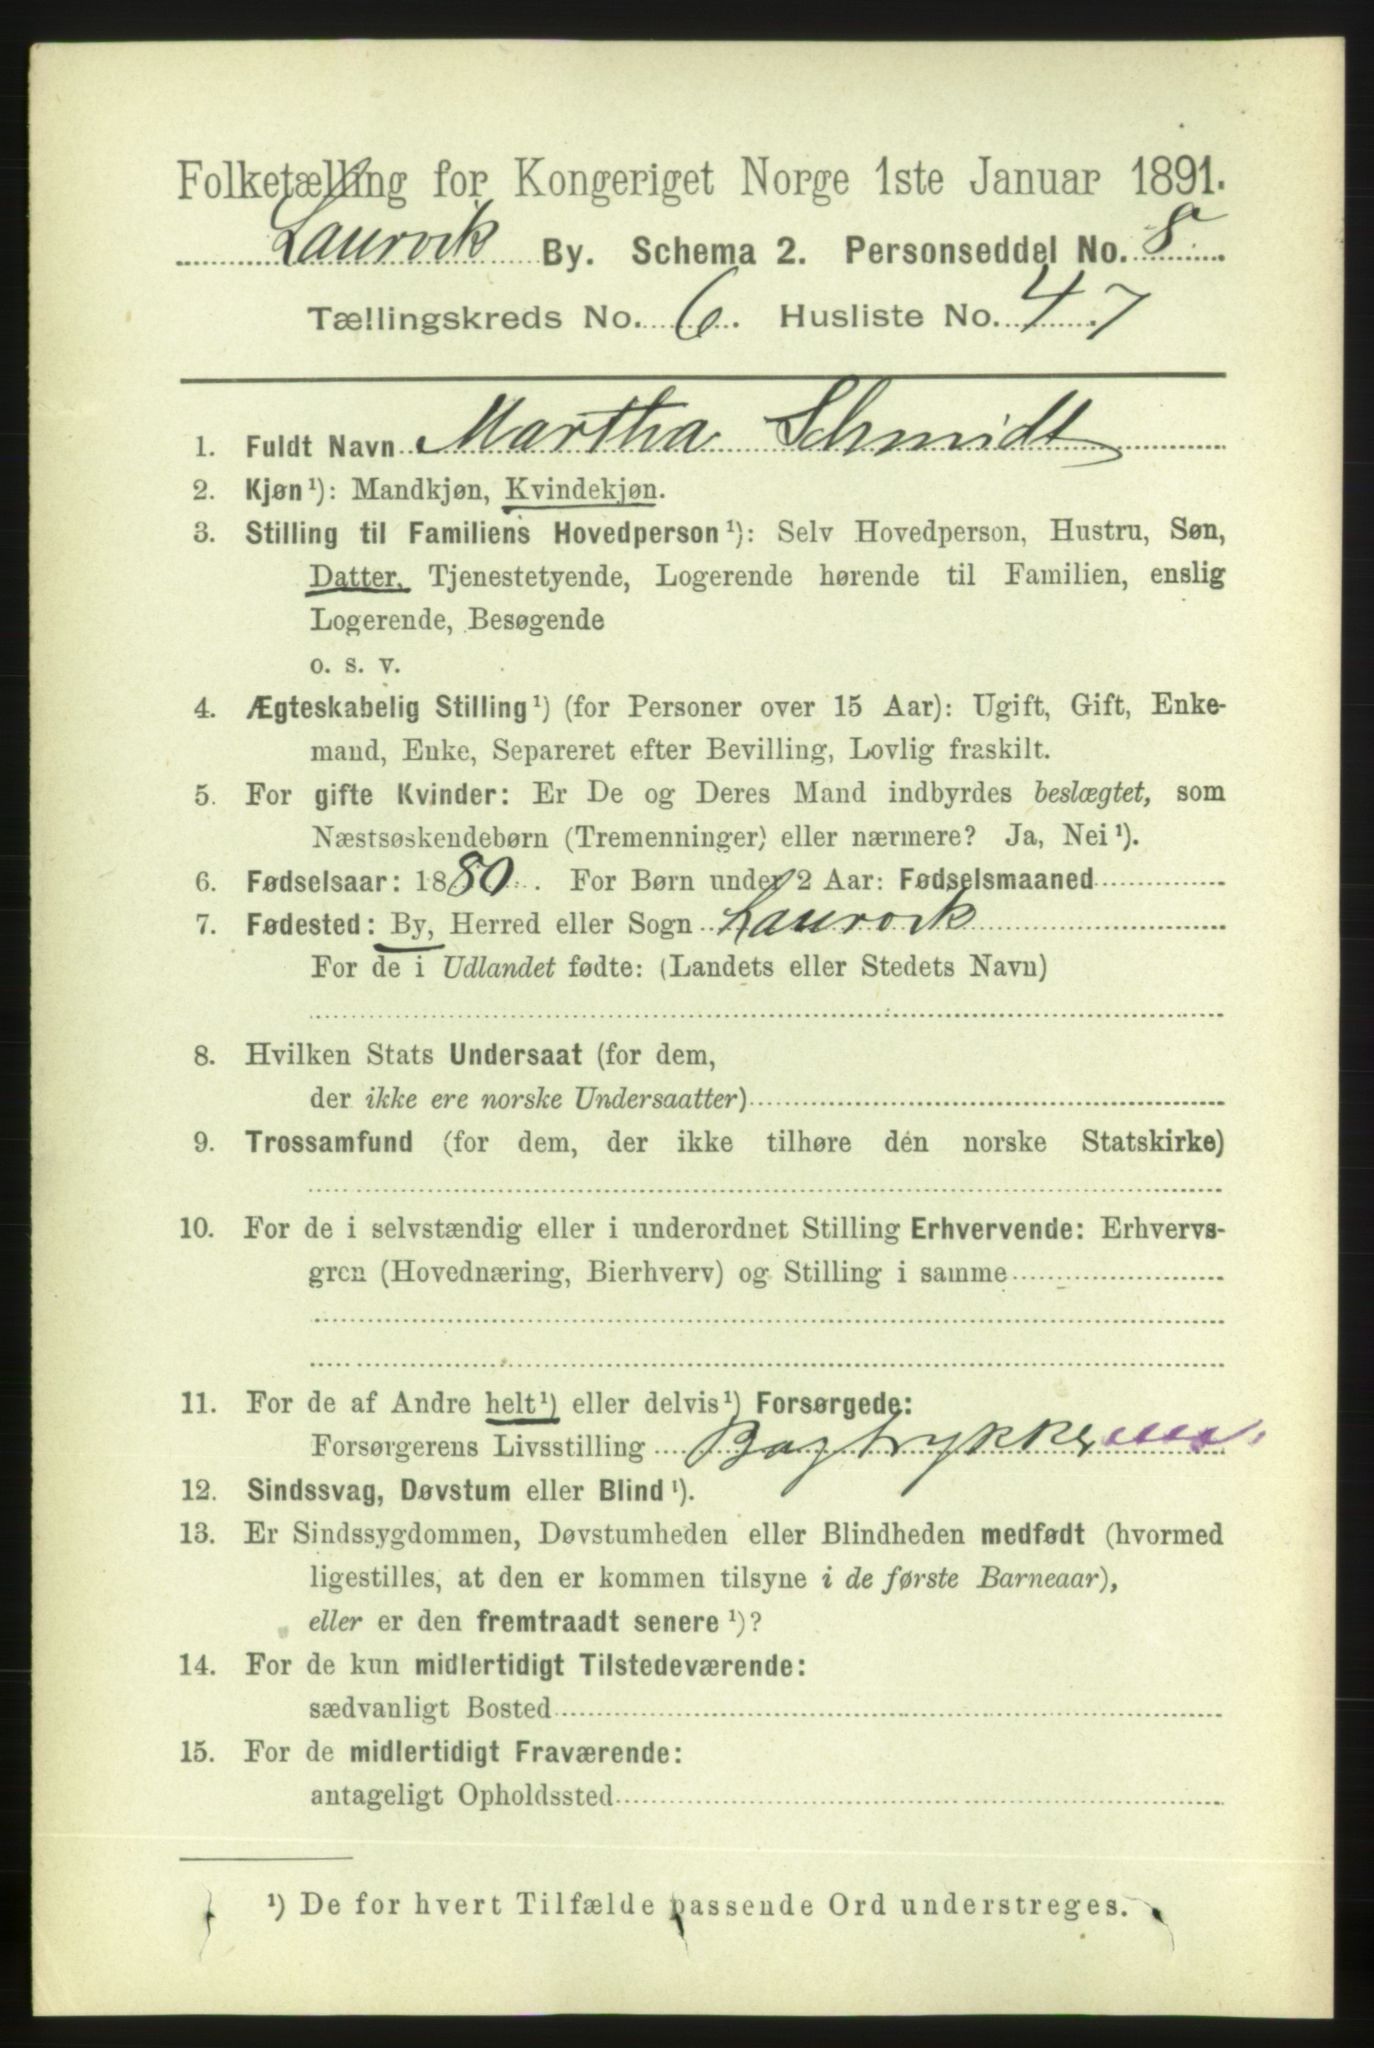 Folketælling for Kongeriget Norge 1ste Januar 1891.
Laurvik By. Schema 2. Personseddel No. 8
Tællingskreds No. 6. Husliste No. 47
1. Fuldt Navn Martha Schmidt
2. Kjøn¹): Mandkjøn, Kvindekjøn.
3. Stilling til Familiens Hovedperson¹): Selv Hovedperson, Hustru, Søn,
Datter, Tjenestetyende, Logerende hørende til Familien, enslig
Logerende, Besøgende
o. s. v.
4. Ægteskabelig Stilling¹) (for Personer over 15 Aar): Ugift, Gift, Enke-
mand, Enke, Separeret efter Bevilling, Lovlig fraskilt.
5. For gifte Kvinder: Er De og Deres Mand indbyrdes beslægtet, som
Næstsøskendebørn (Tremenninger) eller nærmere? Ja, Nei¹).
6. Fødselsaar: 1880. For Børn under 2 Aar: Fødselsmaaned
7. Fødested: By, Herred eller Sogn Laurvik
For de i Udlandet fødte: (Landets eller Stedets Navn)
8. Hvilken Stats Undersaat (for dem,
der ikke ere norske Undersaatter)
9. Trossamfund (for dem, der ikke tilhøre den norske Statskirke)
10. For de i selvstændig eller i underordnet Stilling Erhvervende: Erhvervs-
gren (Hovednæring, Bierhverv) og Stilling i samme
11. For de af Andre helt¹) eller delvis¹) Forsørgede:
Forsørgerens Livsstilling
12. Sindssvag, Døvstum eller Blind¹).
13. Er Sindssygdommen, Døvstumheden eller Blindheden medfødt (hvormed
ligestilles, at den er kommen tilsyne i de første Barneaar),
eller er den fremtraadt senere¹)?
14. For de kun midlertidigt Tilstedeværende:
sædvanligt Bosted
15. For de midlertidigt Fraværende:
antageligt Opholdssted
¹) De for hvert Tilfælde passende Ord understreges.